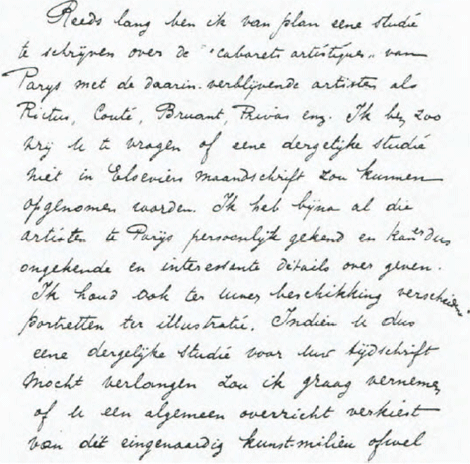 Reeds lang ben ik van plan eene studie
te schrijven over de "cabarets artistiques" van
Parys met de daarin verblijvende artisten als
Rictus, Couté, Bruant, Privas enz. Ik ben zoo
vrij U te vragen of eene dergelijke studie
niet in Elseviers maandschrift zou kunnen
opgenomen worden. Ik heb bijna al die
artisten te Parijs persoonlijk gekend en kan er dus
ongekende en interessante détails over geven.
Ik houd ook ter uwer beschikking verscheidene
portretten ter illustratie. Indien U dus
eene dergelijke studie voor Uw tijdschrift
mocht verlangen zou ik graag vernemen
of U een algemeen overzicht verkiest
van dit eigenaardig kunstmilieu ofwel